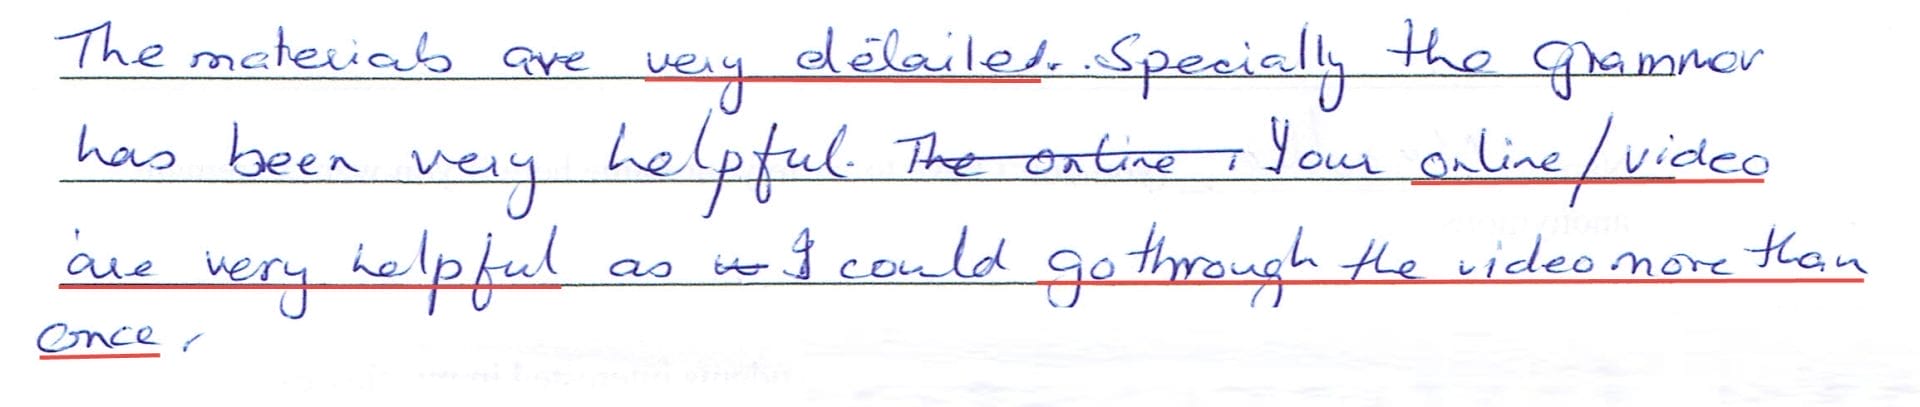 The materials are very detailed. Specially the grammer
has been very helpful. ~~The online~~. Your online/video
are very helpful as ~~w~~ I could go through the video more than
once.